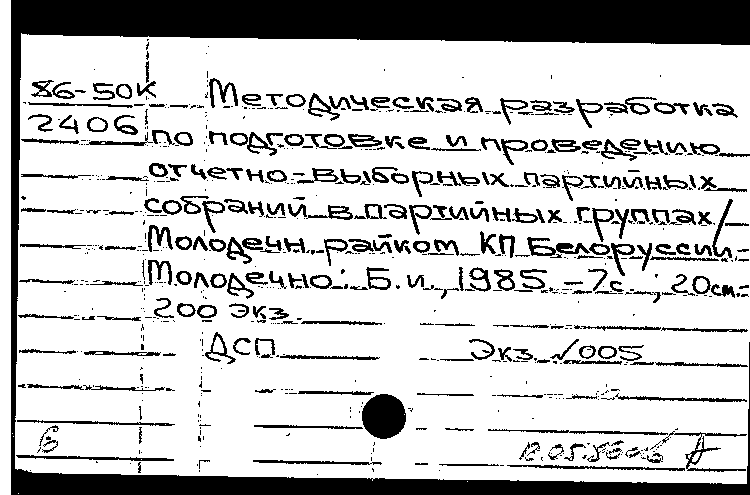 86-50К Методическая разработка
2406 по подготовке и проведению
отчетно-выборных партийных
собраний в партийных группах/
Молодечн. райком КП Белоруссии.-
Молодечно: Б.и., 1985.-7с. ; 20см.-
200 экз.
ДСП Экз. №005